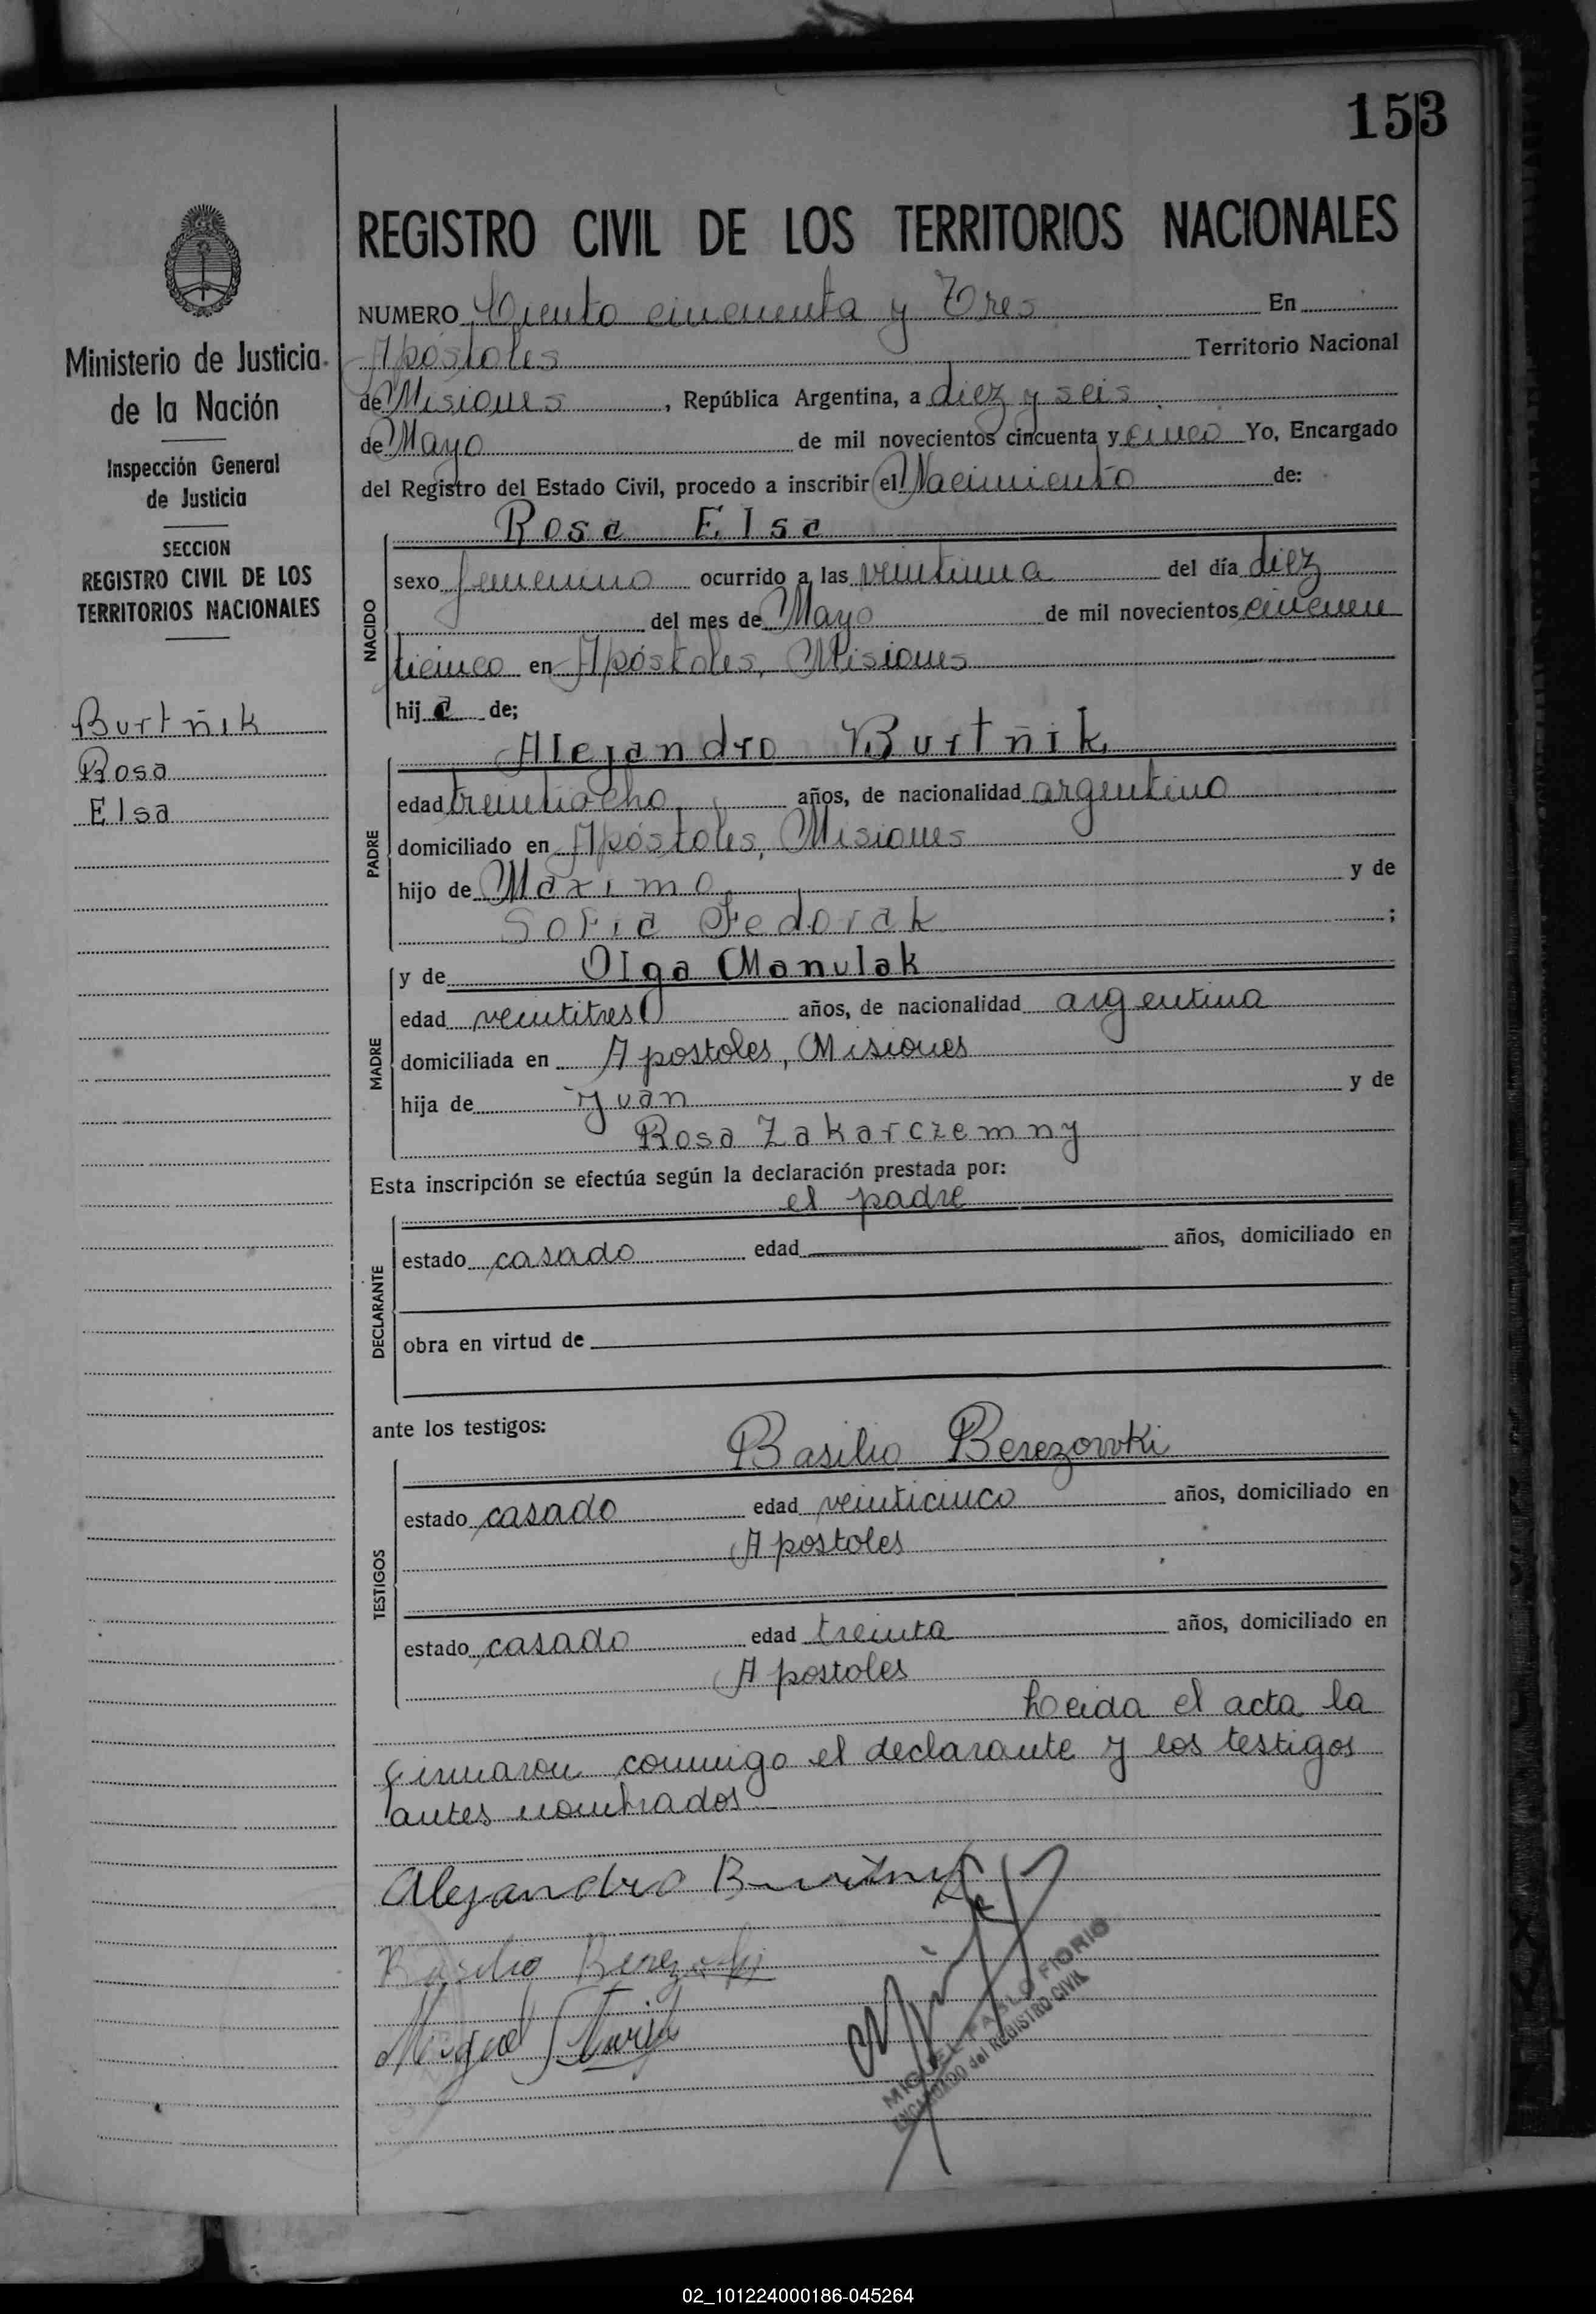 153
REGISTRO CIVIL DE LOS TERRITORIOS NACIONALES
Ministerio de Justicia
de la Nación
Inspección General
de Justicia
SECCION
REGISTRO CIVIL DE LOS
TERRITORIOS NACIONALES
Burtñik
Rosa
Elsa
NUMERO Ciento cincuenta y Tres En
Apóstoles Territorio Nacional
de Misiones, República Argentina, a diez y seis
de Mayo de mil novecientos cincuenta y cinco Yo, Encargado
del Registro del Estado Civil, procedo a inscribir el Nacimiento de:
Rosa Elsa
NACIDO
sexo femenino ocurrido a las veintiuna del día diez
del mes de Mayo de mil novecientos cincuen
ticinco en Apóstoles, Misiones
hija de;
Alejandro Burtñik
PADRE
edad treintiocho años, de nacionalidad argentino
domiciliado en Apóstoles, Misiones
hijo de Maximo y de
Sofia Fedorak ;
y de Olga Manulak
MADRE
edad veintitres años, de nacionalidad argentina
domiciliada en Apostoles, Misiones
hija de Juan y de
Rosa Zakarczemny
Esta inscripción se efectúa según la declaración prestada por:
el padre
DECLARANTE
estado casado edad años, domiciliado en
obra en virtud de
ante los testigos:
Basilio Berezowki
TESTIGOS
estado casado edad veinticinco años, domiciliado en
Apostoles
estado casado edad treinta años, domiciliado en
Apostoles
Leida el acta la
firmaron conmigo el declarante y los testigos
antes nombrados
Alejandro Burtñik
Basilio
Miguel
MIGUEL PABLO FIORIO
ENCARGADO del REGISTRO CIVIL
02_101224000186-045264